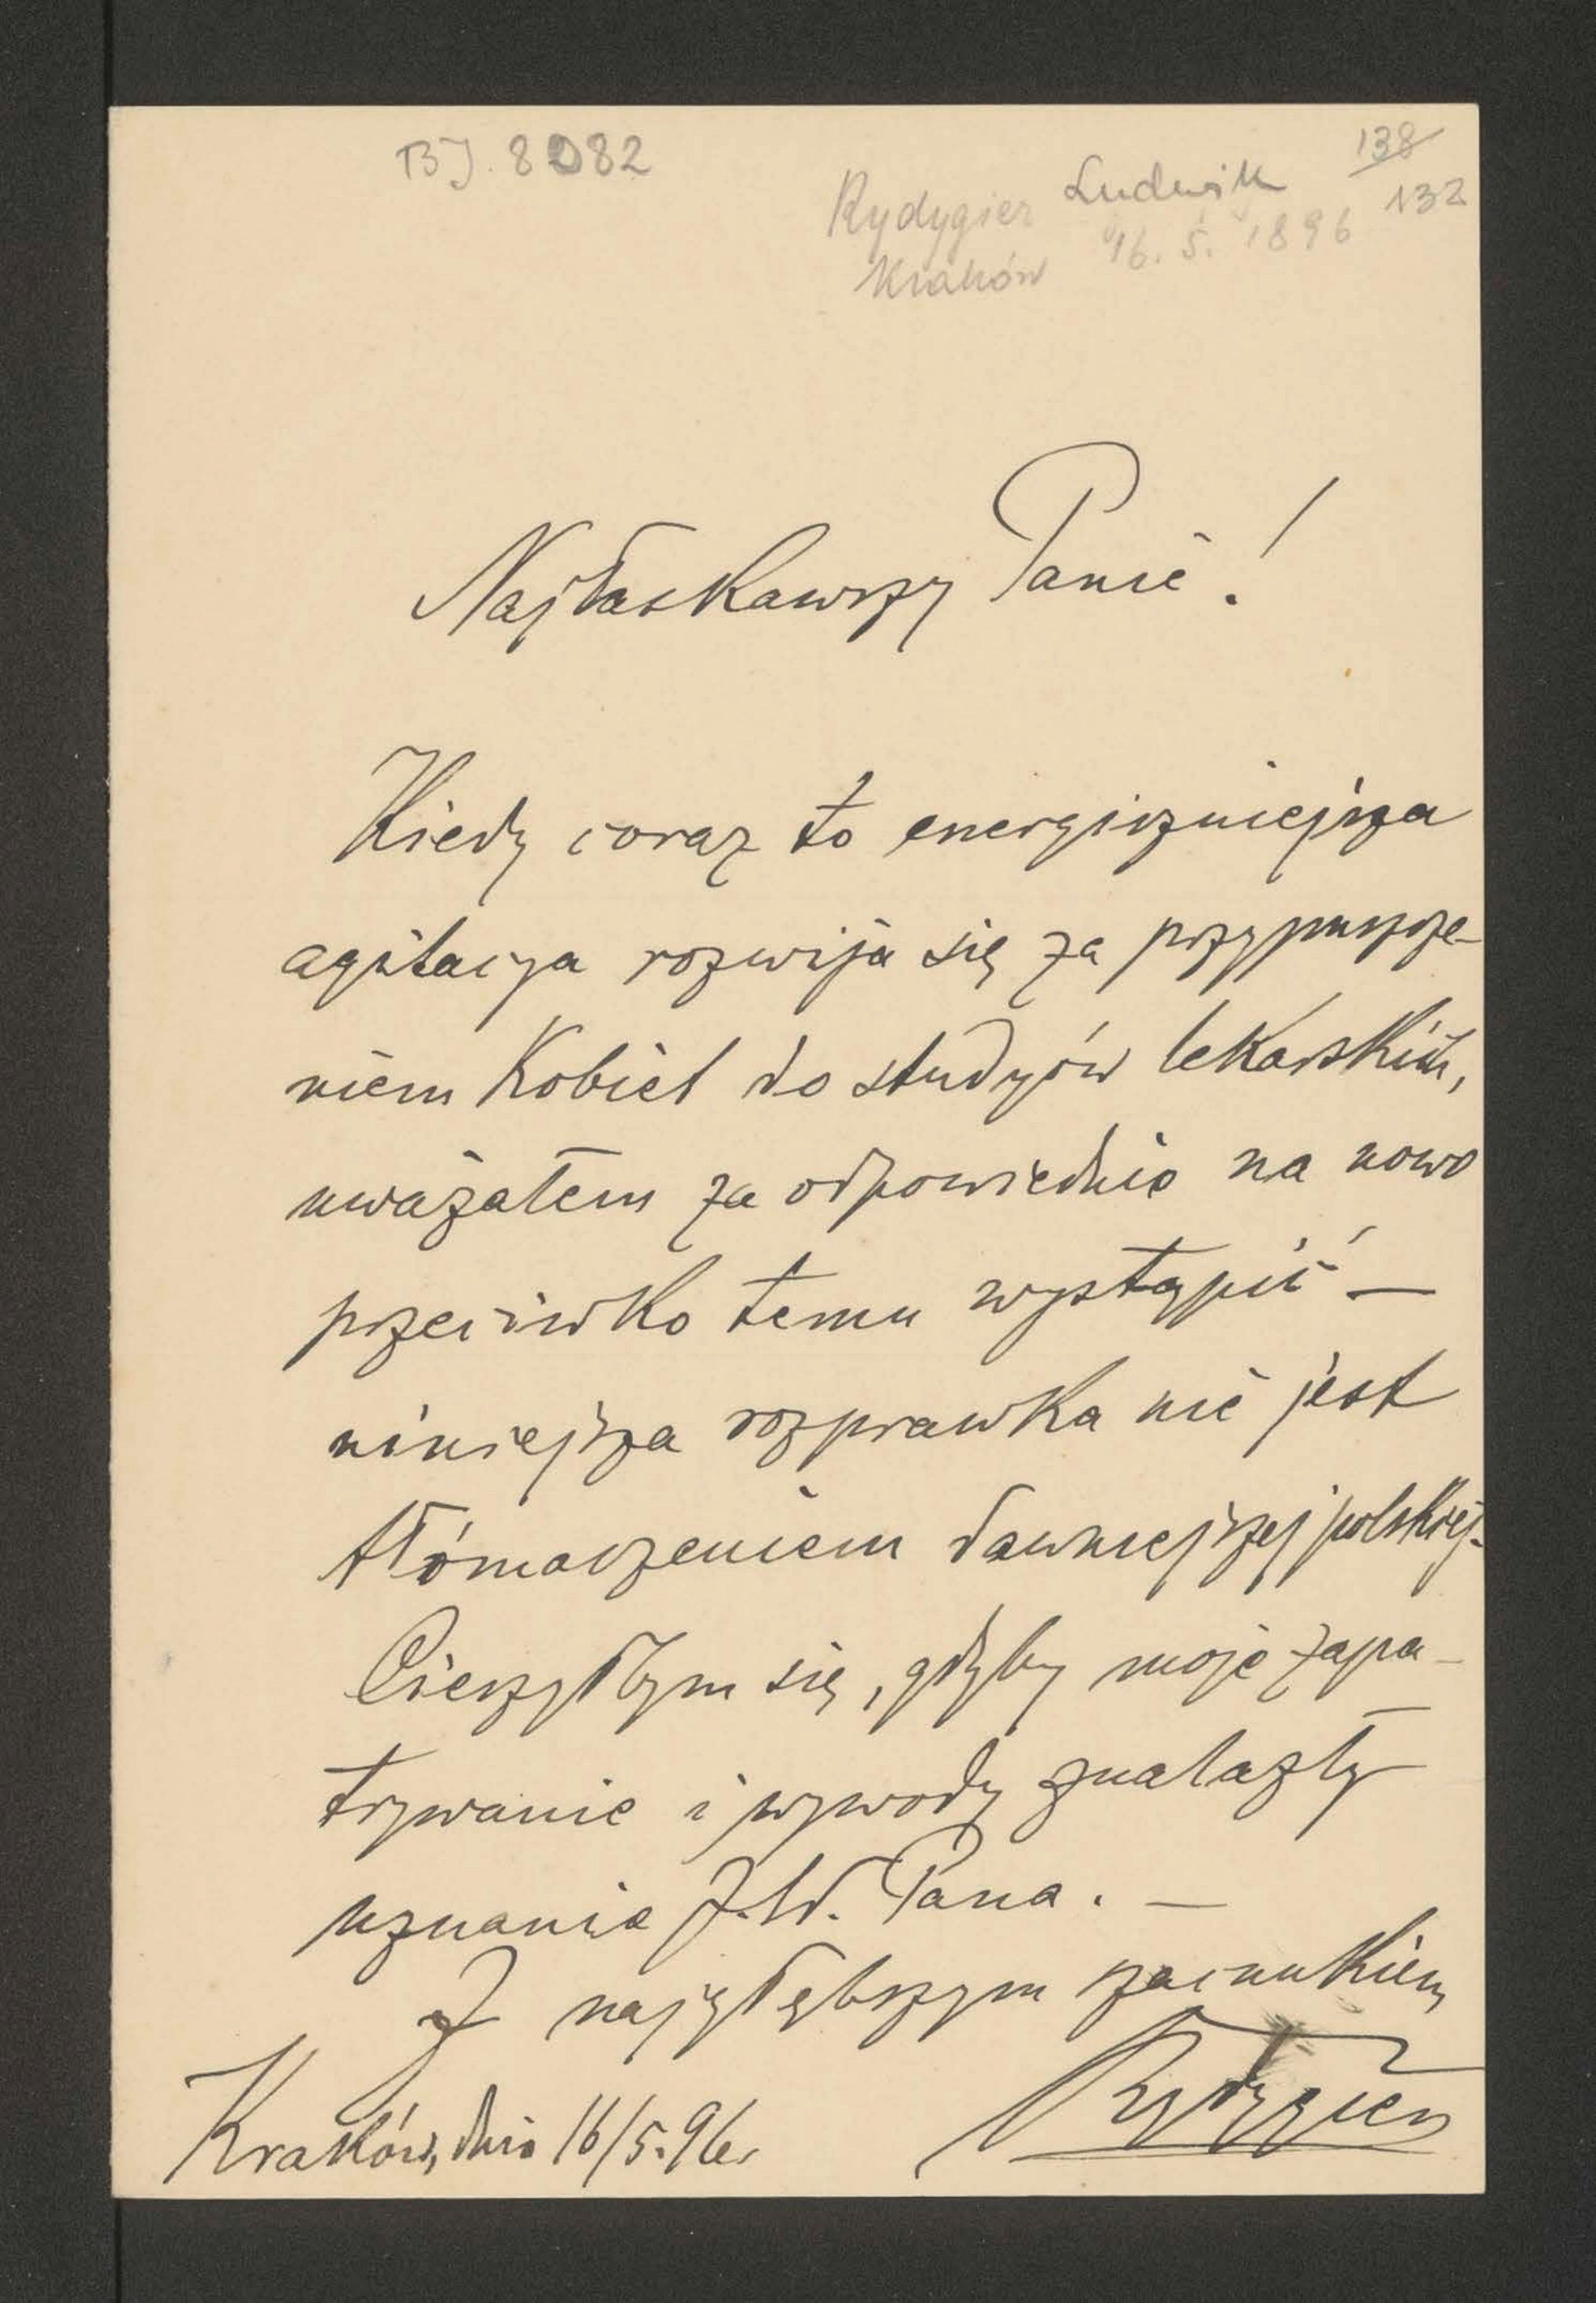 BJ. 8082
138
Rydygier Ludwik 132
Kraków 16. 5. 1896
Najłaskawszy Panie!
Kiedy coraz to energiczniejsza
agitacya rozwija się za przypuszcze-
niem kobiet do studyów lekarskich,
uważałem za odpowiednie na nowo
przeciwko temu wystąpić —
niniejsza rozprawka nie jest
tłómaczeniem dawniejszej polskiej.
Cieszyłbym się, gdyby moje zapa-
trywanie i wywody znalazły
uznanie J.W. Pana. —
Z najgłębszym szacunkiem
Rydygier
Kraków, dnia 16/5.96.